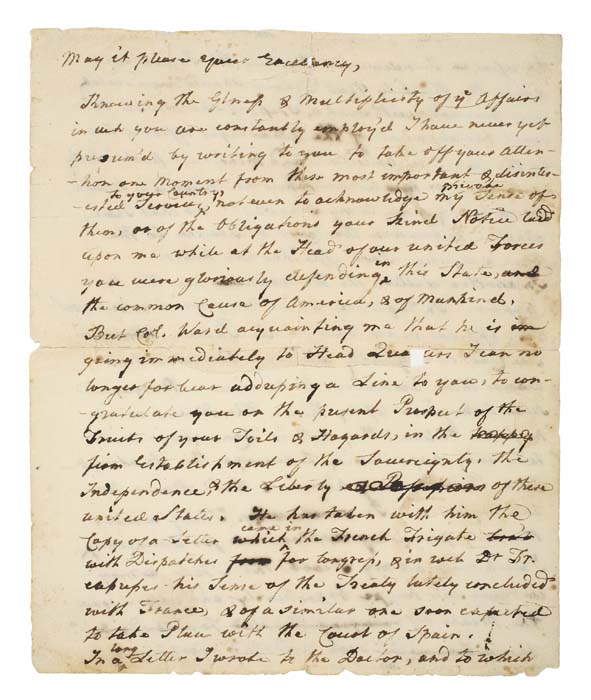 May it please your Excellency,
Knowing the Gtness & Multiplicity of yᵉ Affairs
in wch you are constantly employ'd I have never yet
presum'd by writing to you to take off your Atten-
-tion one Moment from these most important & disinter-
to your Country private
-ested Services, not even to acknowledge my Sense of
them, or of the Obligations your kind Notice laid
upon me while at the Head of our united Forces
in
you were gloriously defending this State, and
the common Cause of America, & of Mankind.
But Col. Ward acquainting me that he is
going immediately to Head Quarters I can no
longer forbear addressing a Line to you, to con-
-gratulate you on the present Prospect of the
Fruits of your Toils & Hazards, in the happy
firm Establishment of the Sovereignty, the
Independence, & the Liberty of these
united States. He has taken with him the
came in
Copy of a Letter which the French Frigate
with Dispatches from for Congress, & in wch Dr Fr.
expresses his Sense of the Treaty lately concluded
with France, & of a similar one soon expected
to take Place with the Court of Spain.
long
In a Letter I wrote to the Doctor, and to which